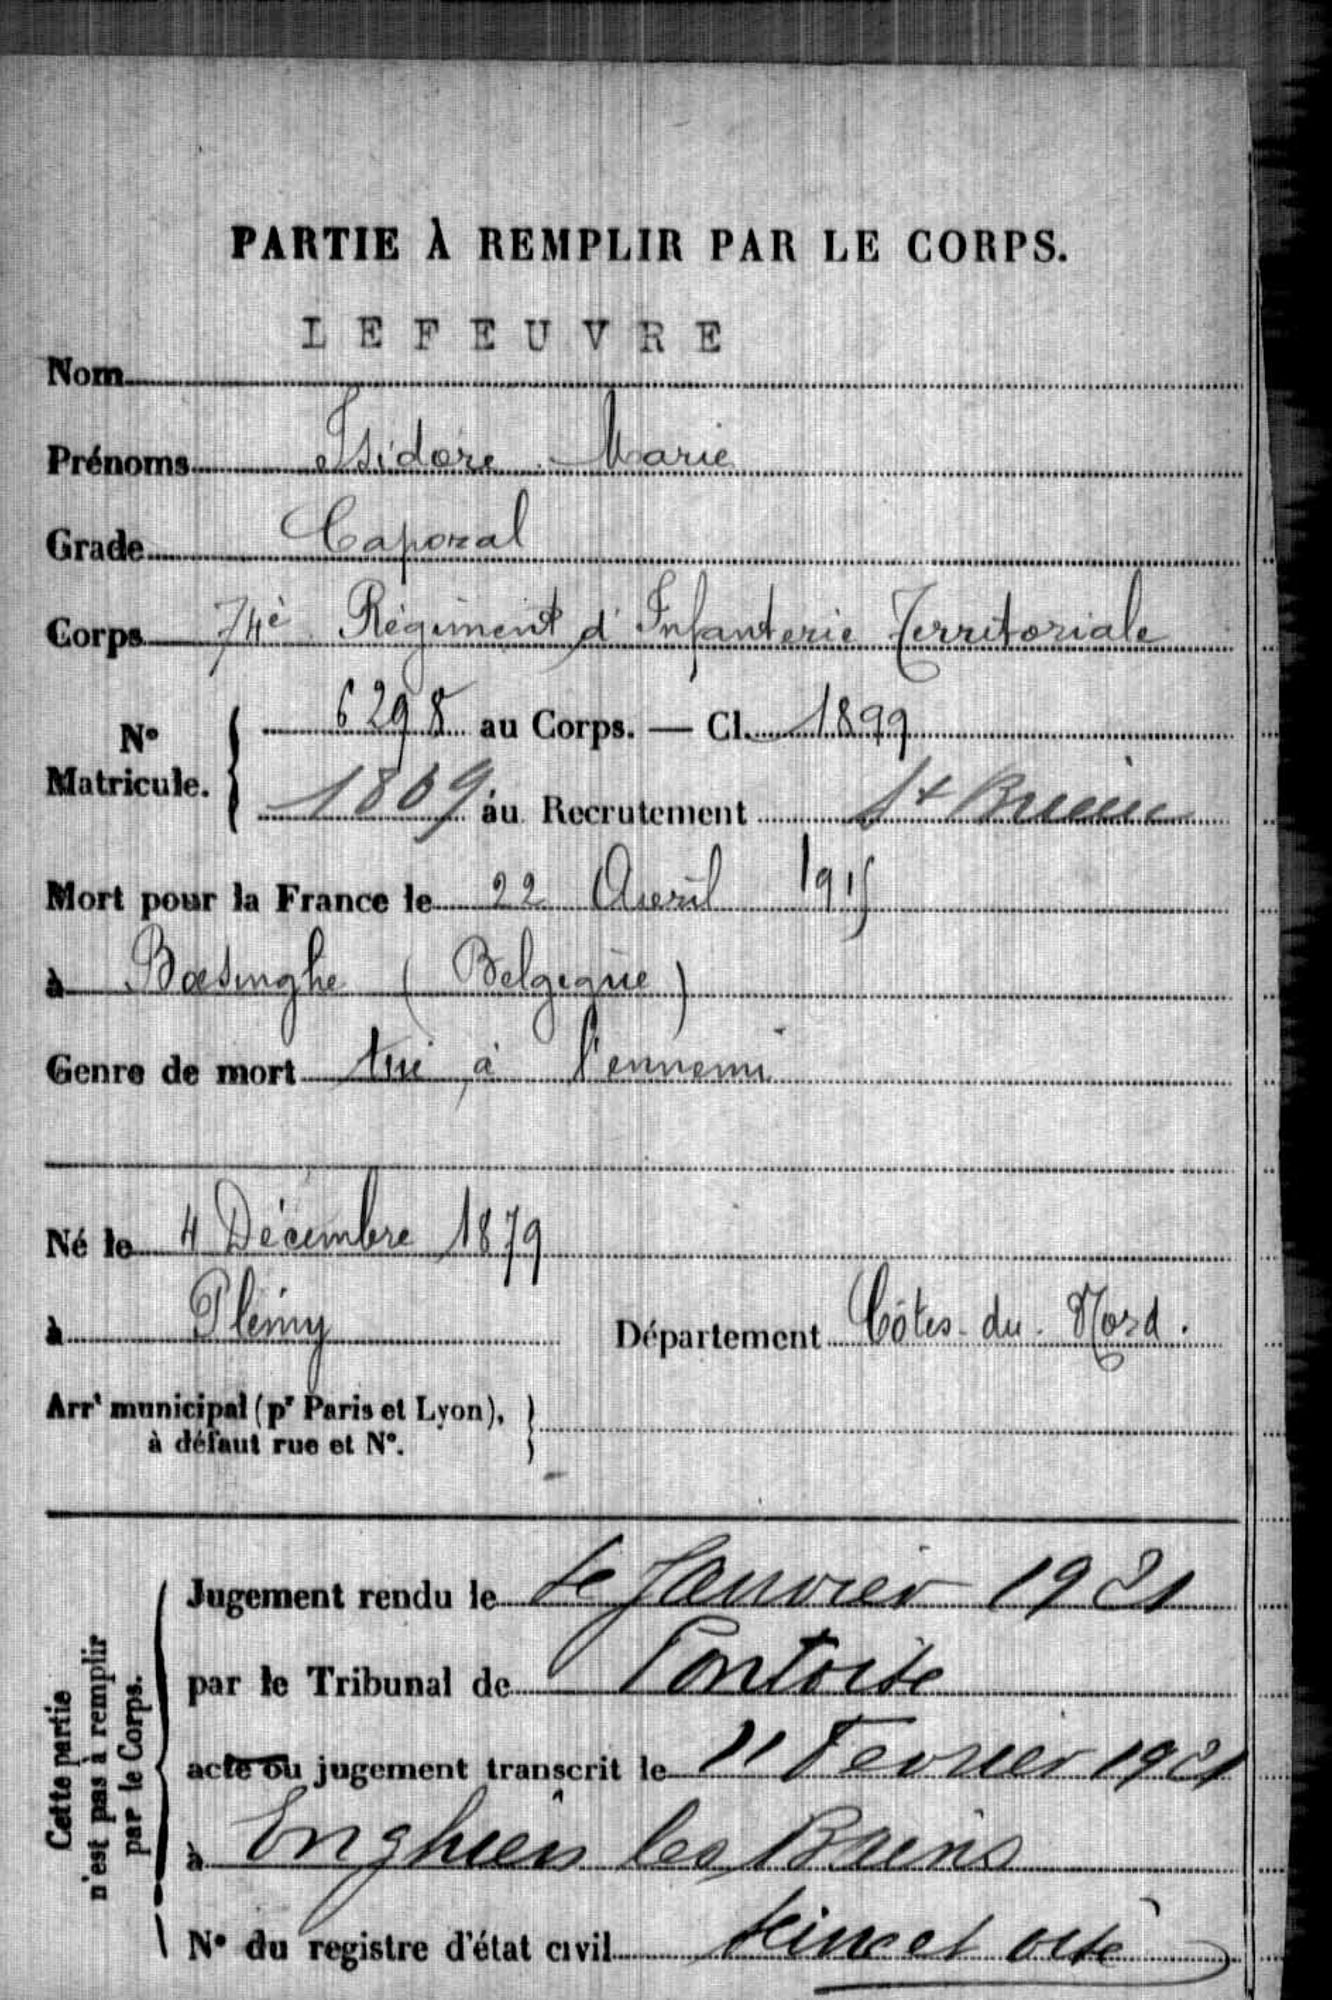 PARTIE À REMPLIR PAR LE CORPS.
LEFEUVRE
Nom
Prénoms Isidore Marie
Grade Caporal
Corps 74è Régiment d'Infanterie Territoriale
N° Matricule. { 6298 au Corps. — Cl. 1899
1869 au Recrutement St Brieuc
Mort pour la France le 22 Avril 1915
à Boesinghe (Belgique)
Genre de mort tué à l'ennemi
Né le 4 Décembre 1879
à Plémy Département Côtes-du-Nord.
Arrt municipal (pr Paris et Lyon),
à défaut rue et N°.
Cette partie
n'est pas à remplir
par le Corps.
Jugement rendu le Janvier 1921
par le Tribunal de Pontoise
acte ou jugement transcrit le 11 Février 1921
à Enghien les Bains
N° du registre d'état civil Seine et Oise